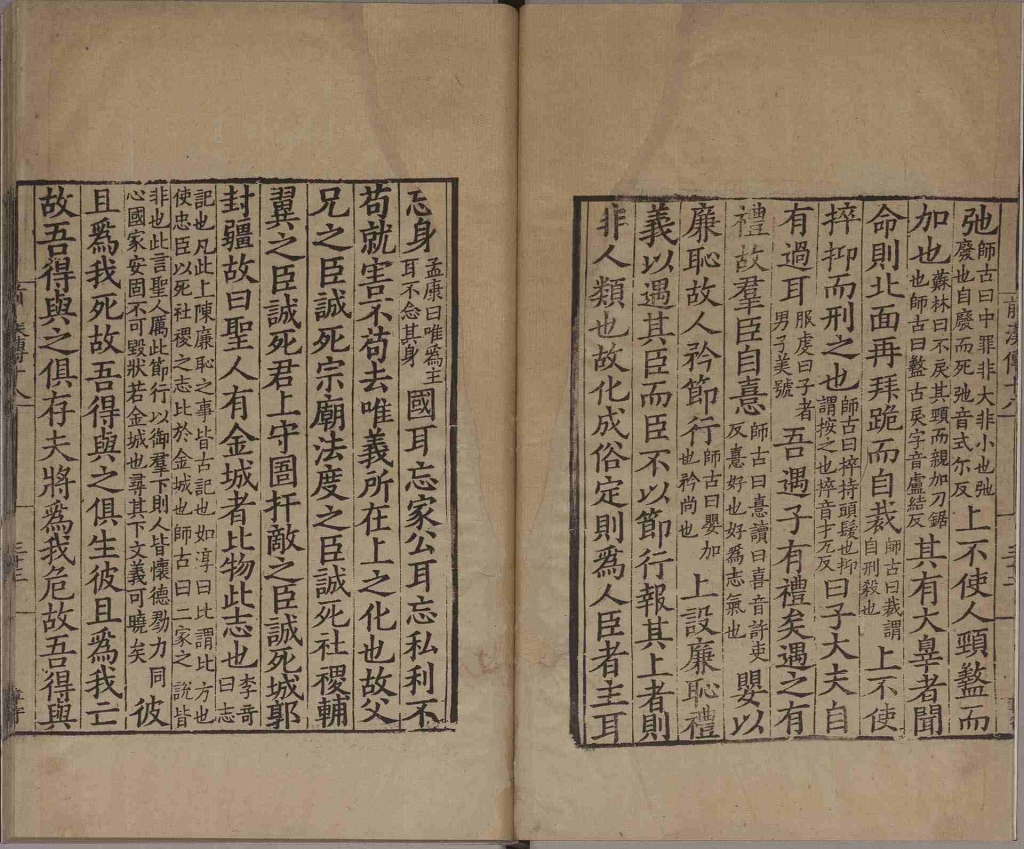 前漢傳十八
弛師古曰中罪非大非小也弛廢也自廢而死弛音式尒反上不使人頸盭而
加也蘇林曰不戾其頸而親加刀鋸也師古曰盭古戾字音盧結反其有大辠者聞
命則北面再拜跪而自裁師古曰裁謂自刑殺也上不使
捽抑而刑之也師古曰捽持頭髮也抑謂按之也捽音才兀反曰子大夫自
有過耳服虔曰子者男子美號吾遇子有禮矣遇之有
禮故羣臣自憙師古曰憙讀曰喜音許吏反憙好也好爲志氣也嬰以
廉恥故人矜節行師古曰嬰加也矜尚也上設廉恥禮
義以遇其臣而臣不以節行報其上者則
非人類也故化成俗定則爲人臣者主耳
忘身孟康曰唯爲主耳不念其身國耳忘家公耳忘私利不
苟就害不苟去唯義所在上之化也故父
兄之臣誠死宗廟法度之臣誠死社稷輔
翼之臣誠死君上守圄扞敵之臣誠死城郭
封疆故曰聖人有金城者比物此志也李奇曰志
記也凡此上陳廉恥之事皆古記也如淳曰比謂比方也
使忠臣以死社稷之志比於金城也師古曰二家之說皆
非也此言聖人厲此節行以御羣下則人皆懷德勠力同
心國家安固不可毀狀若金城也尋其下文義可曉矣彼
且爲我死故吾得與之俱生彼且爲我亡
故吾得與之俱存夫將爲我危故吾得與